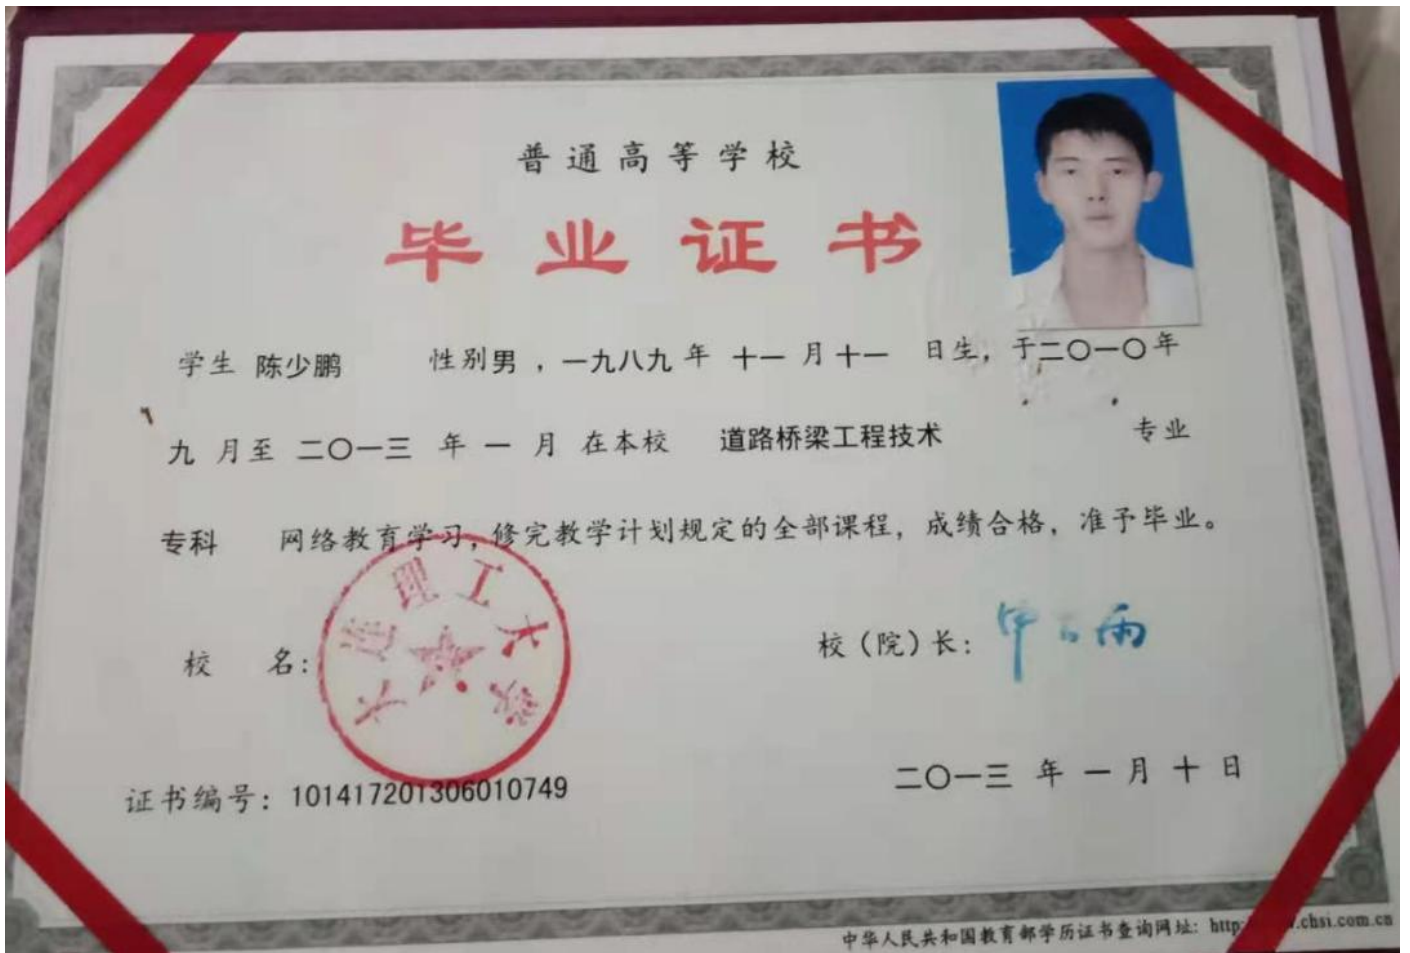 普通高等学校
毕业证书
学生 陈少鹏 性别男，一九八九年 十一月十一 日生，于二〇一〇年
九 月至 二〇一三 年 一 月 在本校 道路桥梁工程技术 专业
专科 网络教育学习，修完教学计划规定的全部课程，成绩合格，准予毕业。
大连理工大学
校 名： 校（院）长：
证书编号：101417201306010749 二〇一三 年 一 月 十 日
中华人民共和国教育部学历证书查询网址：http .chsi.com.cn